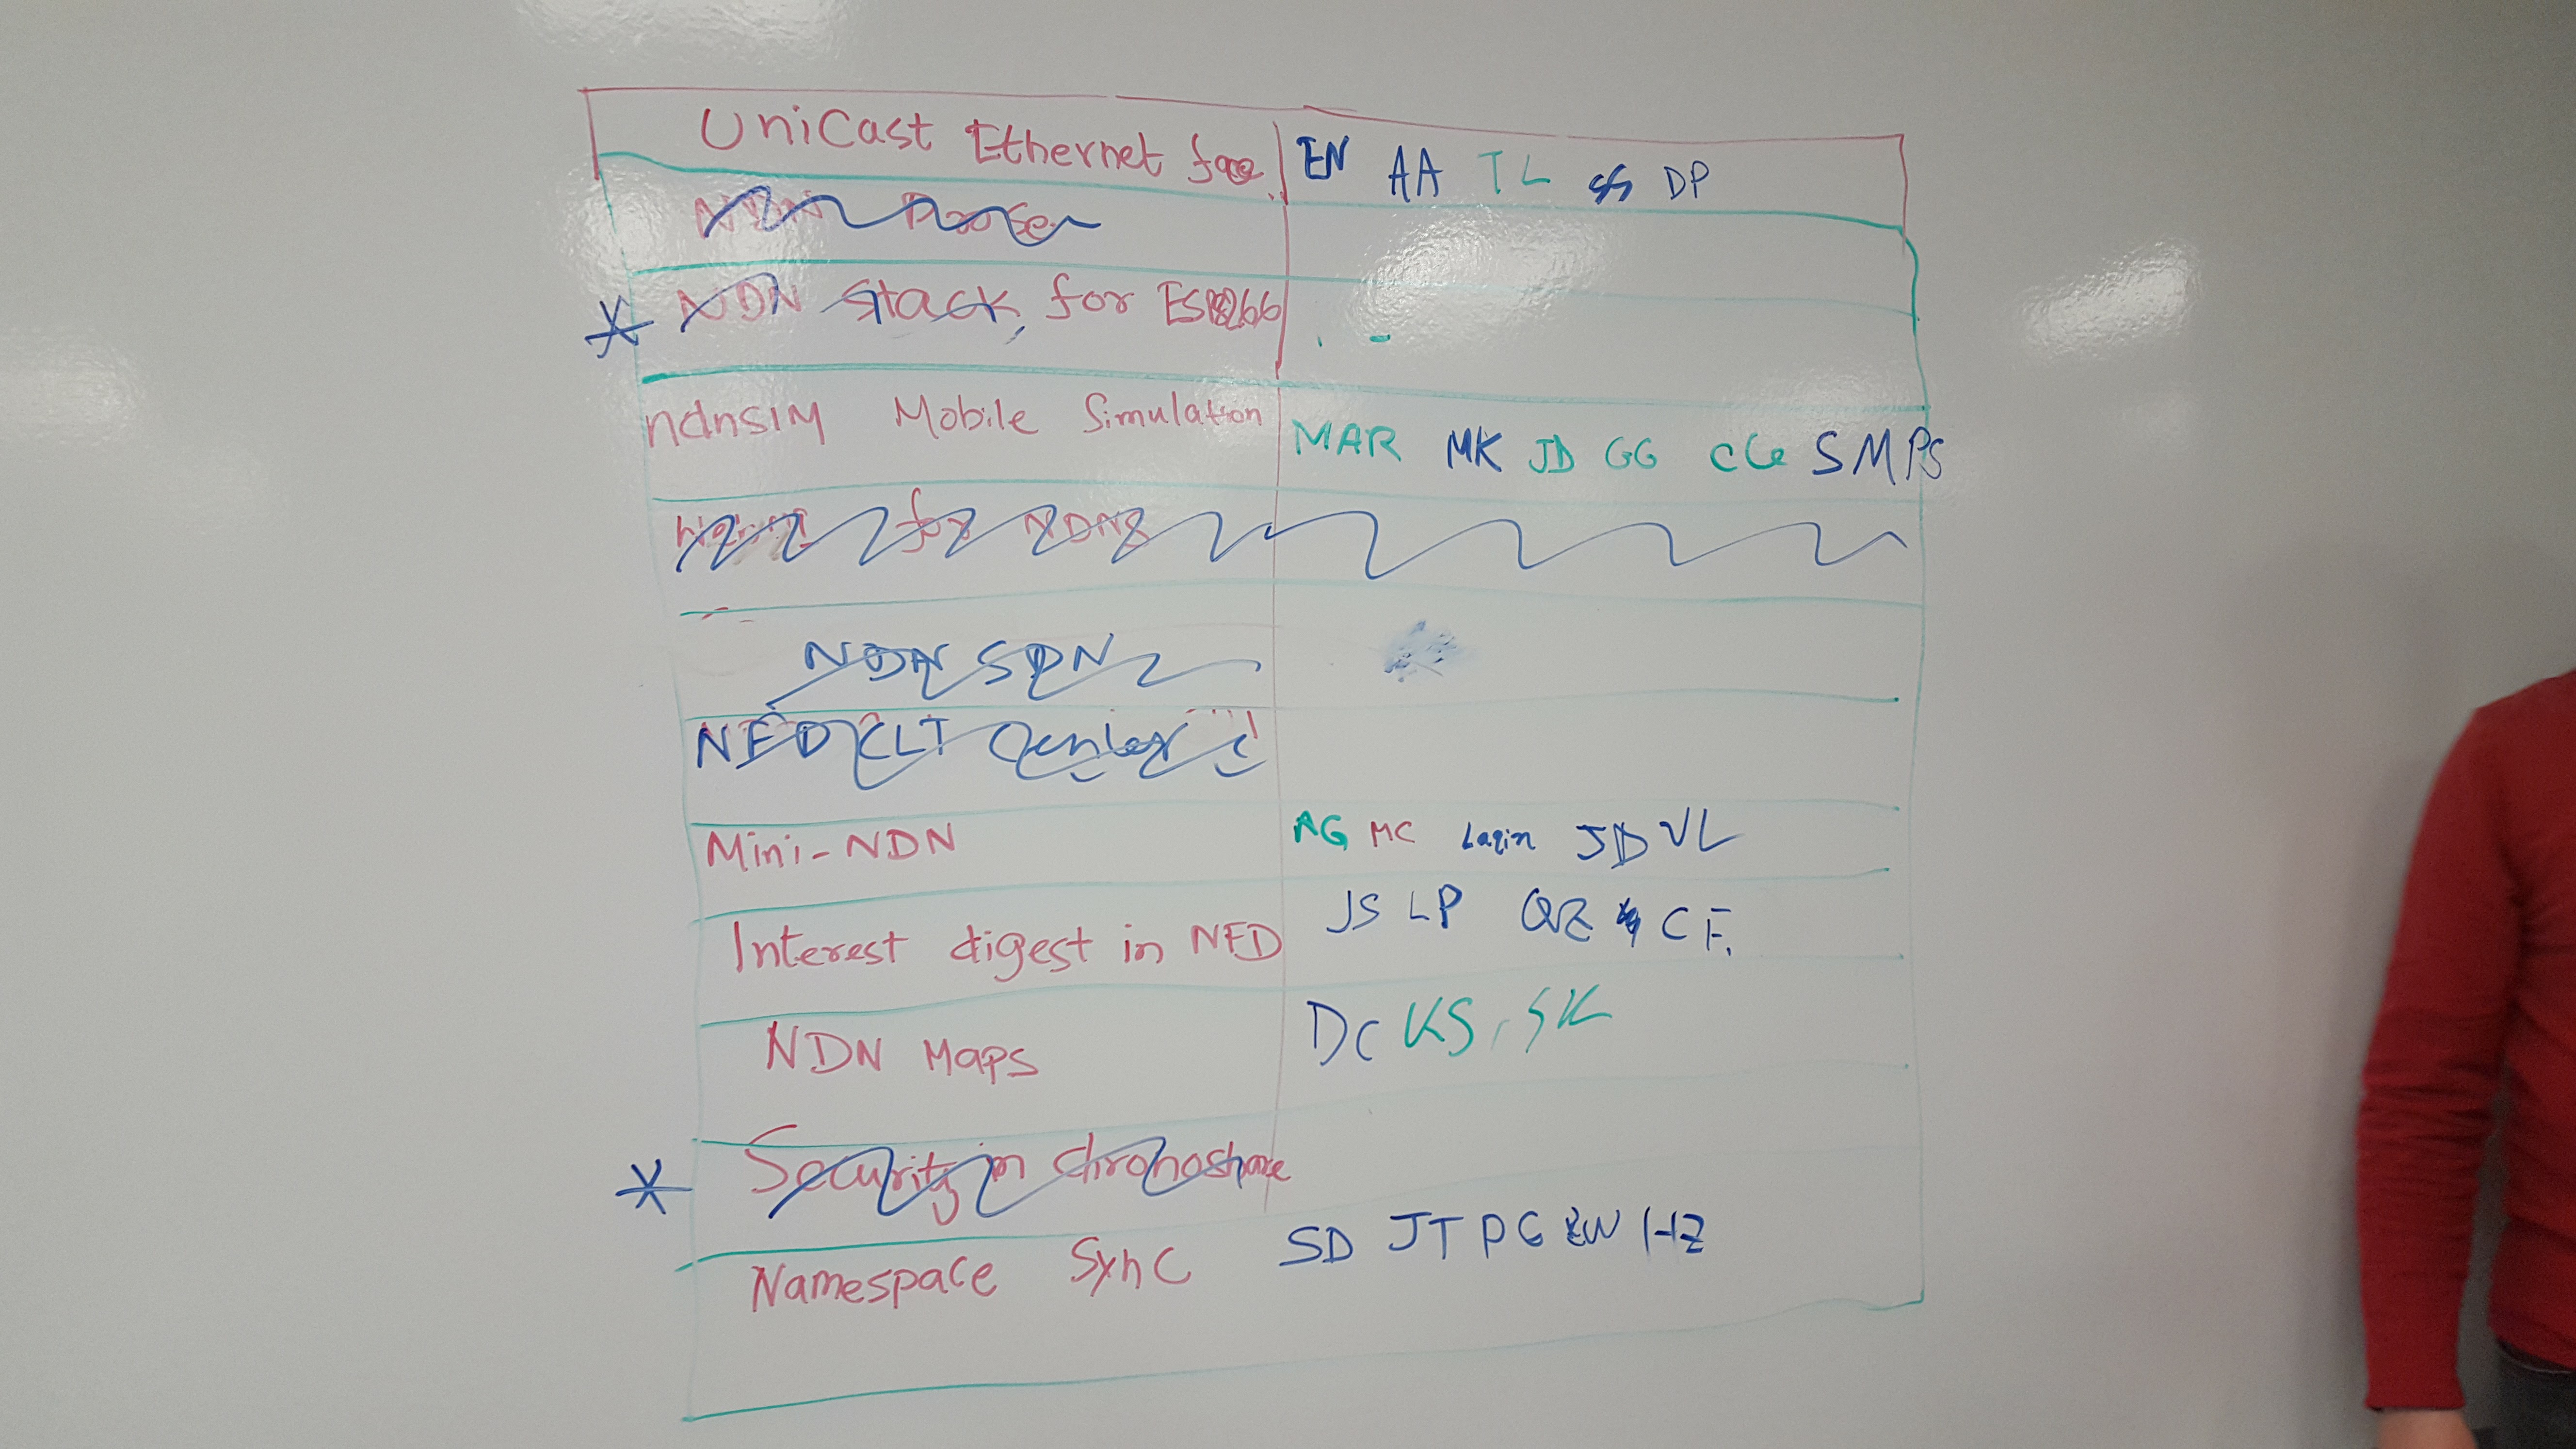 UniCast Ethernet face EN AA TL DP
NDN
NDN Stack for ESP8266
ndnSIM Mobile Simulation MAR MK JD GG CG SM PS
for NDNS
NDN SDN
NFD CLI
Mini-NDN AG MC Laqin JD VL
Interest digest in NFD JS LP QZ CF.
NDN Maps DC KS, SK
Security in chronoshare
Namespace Sync SD JT PG HZ